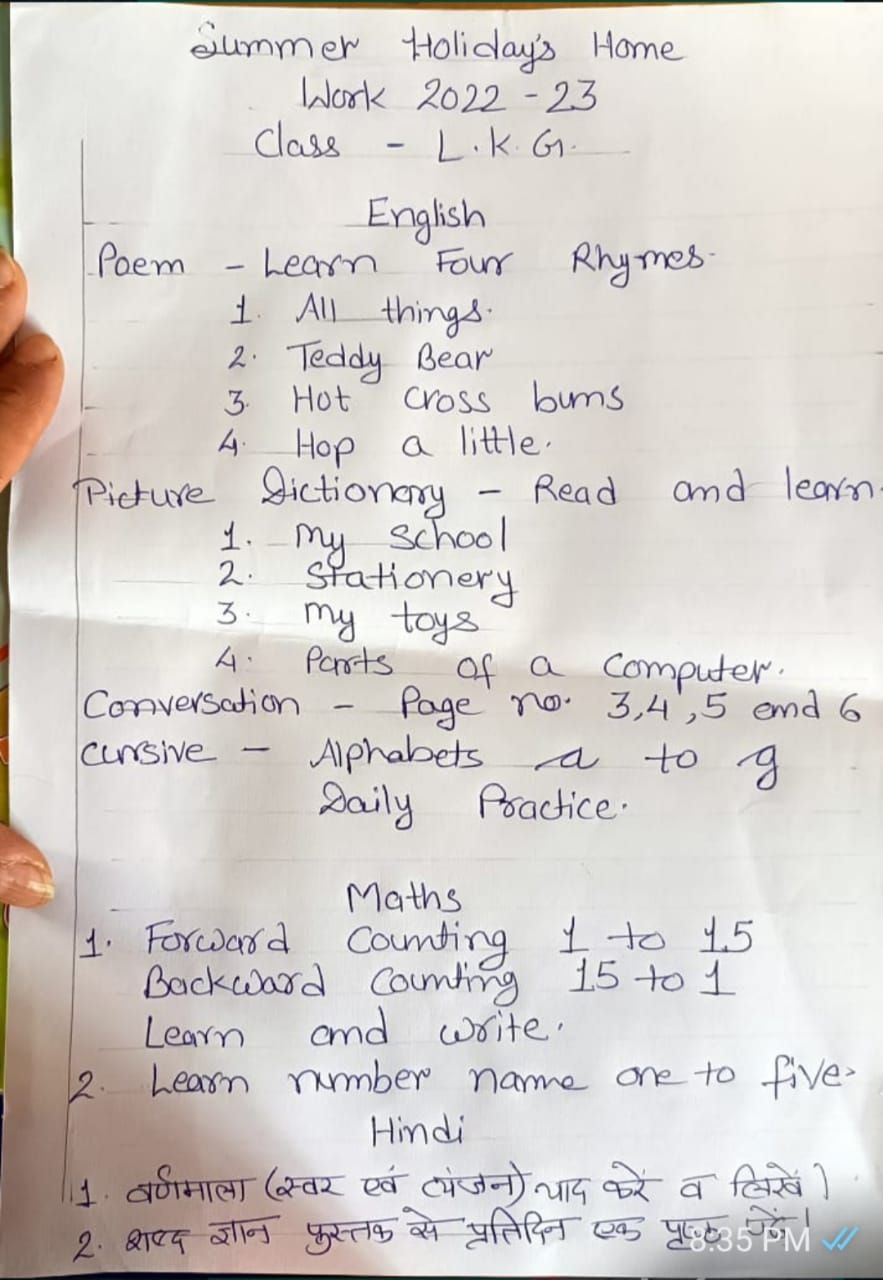 Summer Holiday's Home
Work 2022 - 23
Class - L.K.G.
English
Poem - Learn Four Rhymes.
1. All things.
2. Teddy Bear
3. Hot cross buns
4. Hop a little.
Picture Dictionary - Read and learn.
1. My School
2. Stationery
3. My toys
4. Parts of a Computer.
Conversation - Page no. 3,4,5 and 6
Cursive - Alphabets a to g
Daily Practice.
Maths
1. Forward Counting 1 to 15
Backward Counting 15 to 1
Learn and write.
2. Learn number name one to five.
Hindi
1. वर्णमाला (स्वर एवं व्यंजन) याद करें व लिखें।
2. शब्द ज्ञान पुस्तक से प्रतिदिन एक पृष्ठ पढ़ें।
8:35 PM